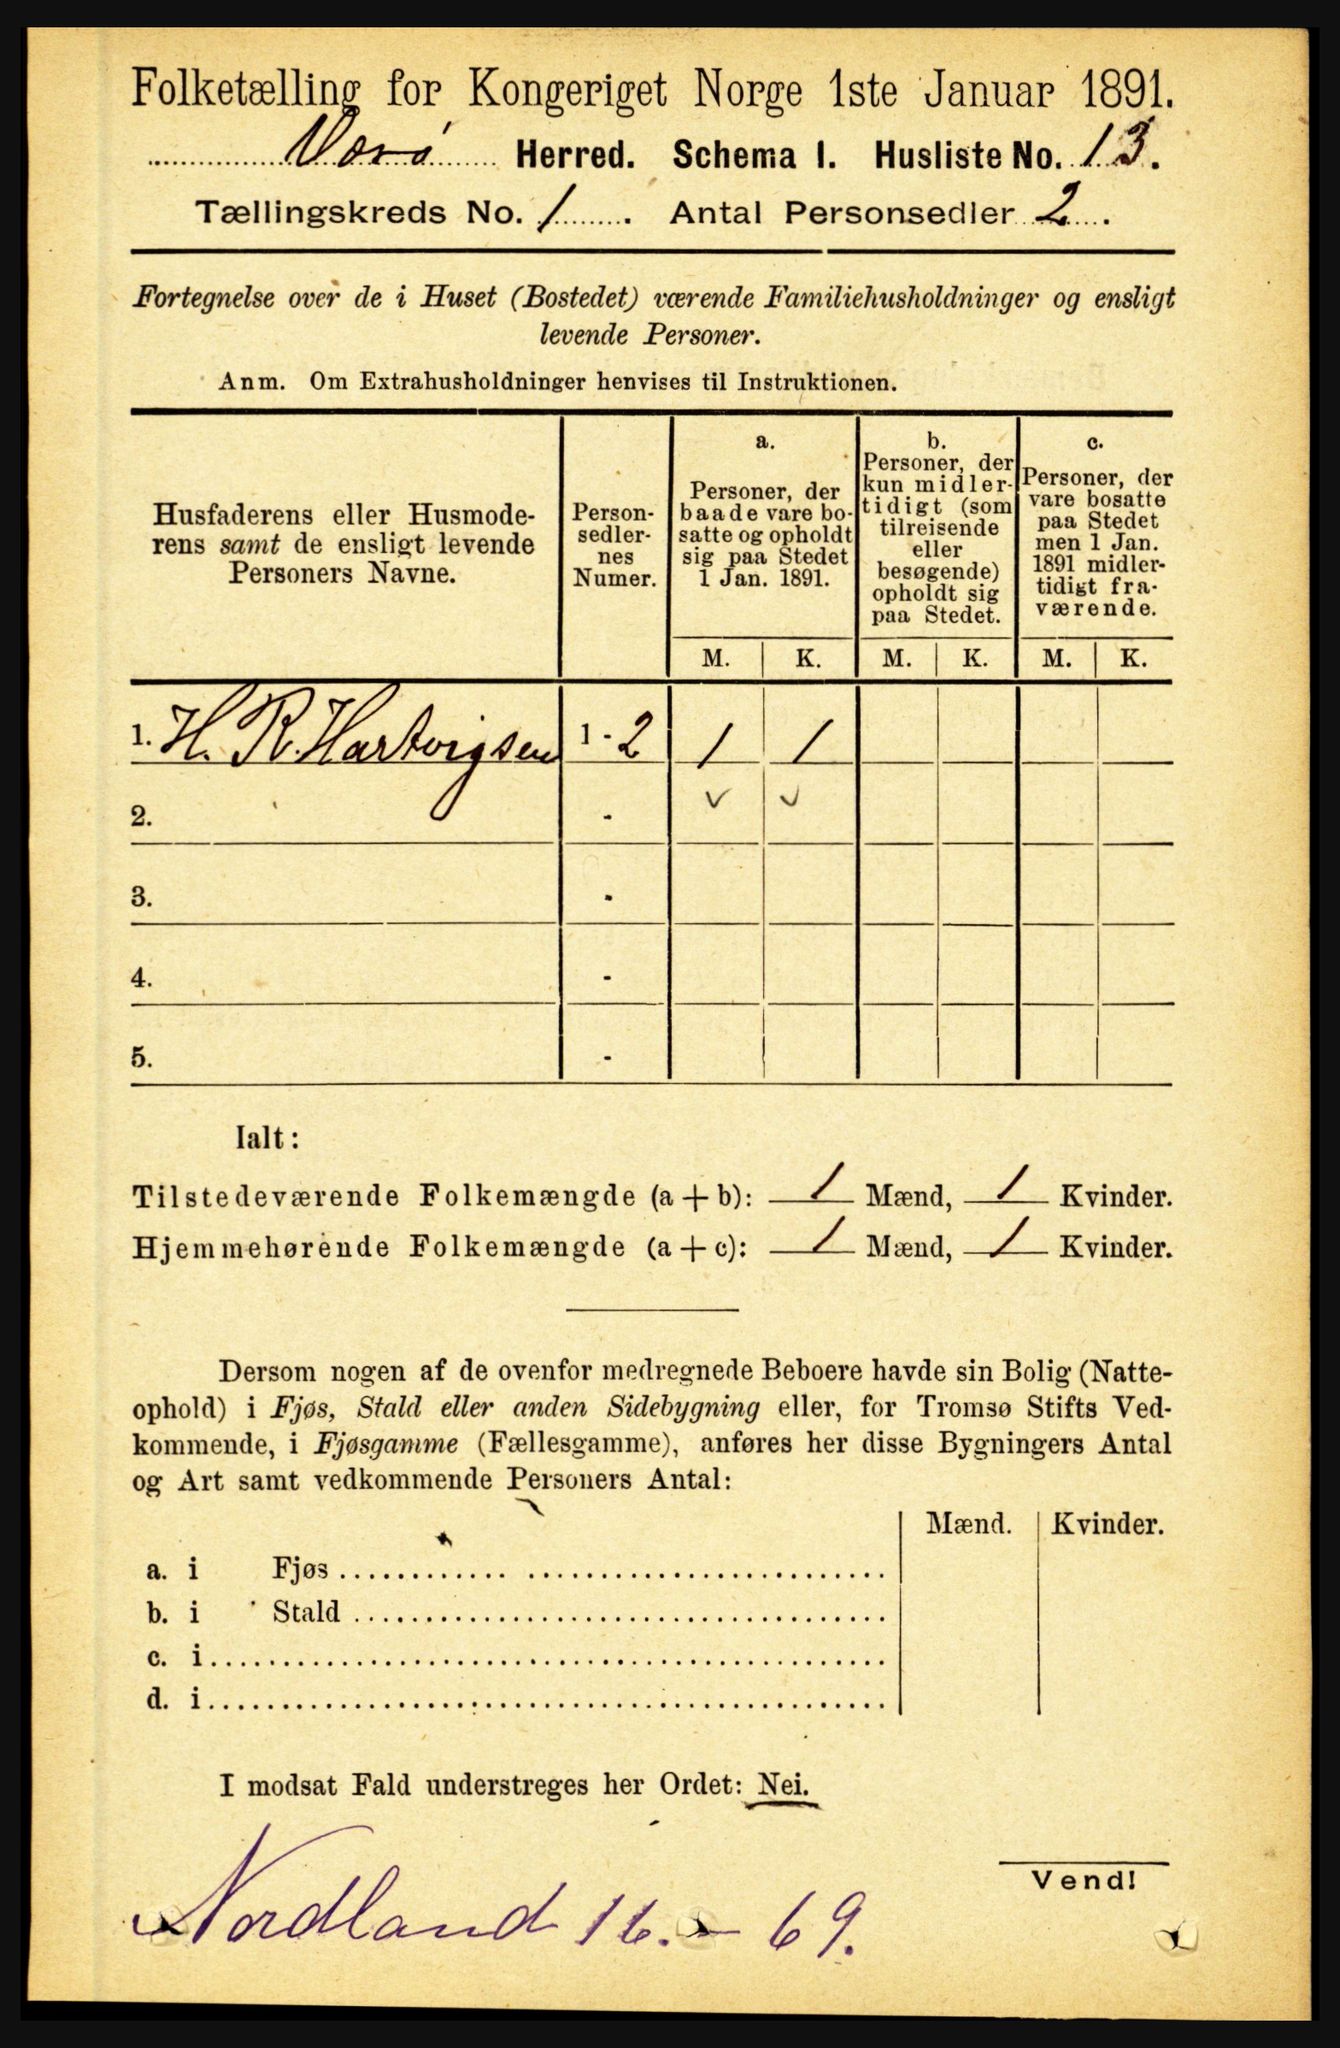 Folketælling for Kongeriget Norge 1ste Januar 1891.
Værø Herred. Schema 1. Husliste No. 13.
Tællingskreds No. 1. Antal Personsedler 2.
Fortegnelse over de i Huset (Bostedet) værende Familiehusholdninger og ensligt
levende Personer.
Anm. Om Extrahusholdninger henvises til Instruktionen.
Husfaderens eller Husmode-
rens samt de ensligt levende
Personers Navne.
Person-
sedler-
nes
Numer.
a.
Personer, der
baade vare bo-
satte og opholdt
sig paa Stedet
1 Jan. 1891.
b.
Personer, der
kun midler-
tidigt (som
tilreisende
eller
besøgende)
opholdt sig
paa Stedet.
c.
Personer, der
vare bosatte
paa Stedet
men 1 Jan.
1891 midler-
tidigt fra-
værende.
M. K. M. K. M. K.
1. H. R. Hartvigsen 1 - 2 1 1
2. -
3. -
4. -
5. -
Ialt:
Tilstedeværende Folkemængde (a + b): 1 Mænd, 1 Kvinder.
Hjemmehørende Folkemængde (a + c): 1 Mænd, 1 Kvinder.
Dersom nogen af de ovenfor medregnede Beboere havde sin Bolig (Natte-
ophold) i Fjøs, Stald eller anden Sidebygning eller, for Tromsø Stifts Ved-
kommende, i Fjøsgamme (Fællesgamme), anføres her disse Bygningers Antal
og Art samt vedkommende Personers Antal:
Mænd. Kvinder.
a. i Fjøs
b. i Stald
c. i
d. i
I modsat Fald understreges her Ordet: Nei.
Vend!
Nordland 16. - 69.